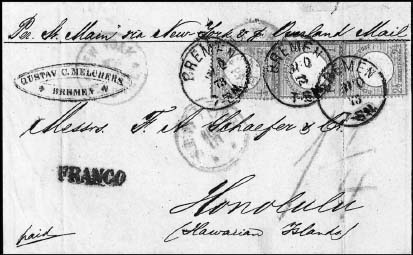 Per St. Main via New-York & p. Overland Mail
NEW YORK
GUSTAV C. MELCHERS
BREMEN
BREMEN
73
BREMEN
73
BREMEN
73
Messrs. F. A. Schaefer & Co.
FRANCO
Honolulu
paid
(Hawaiian Islands)